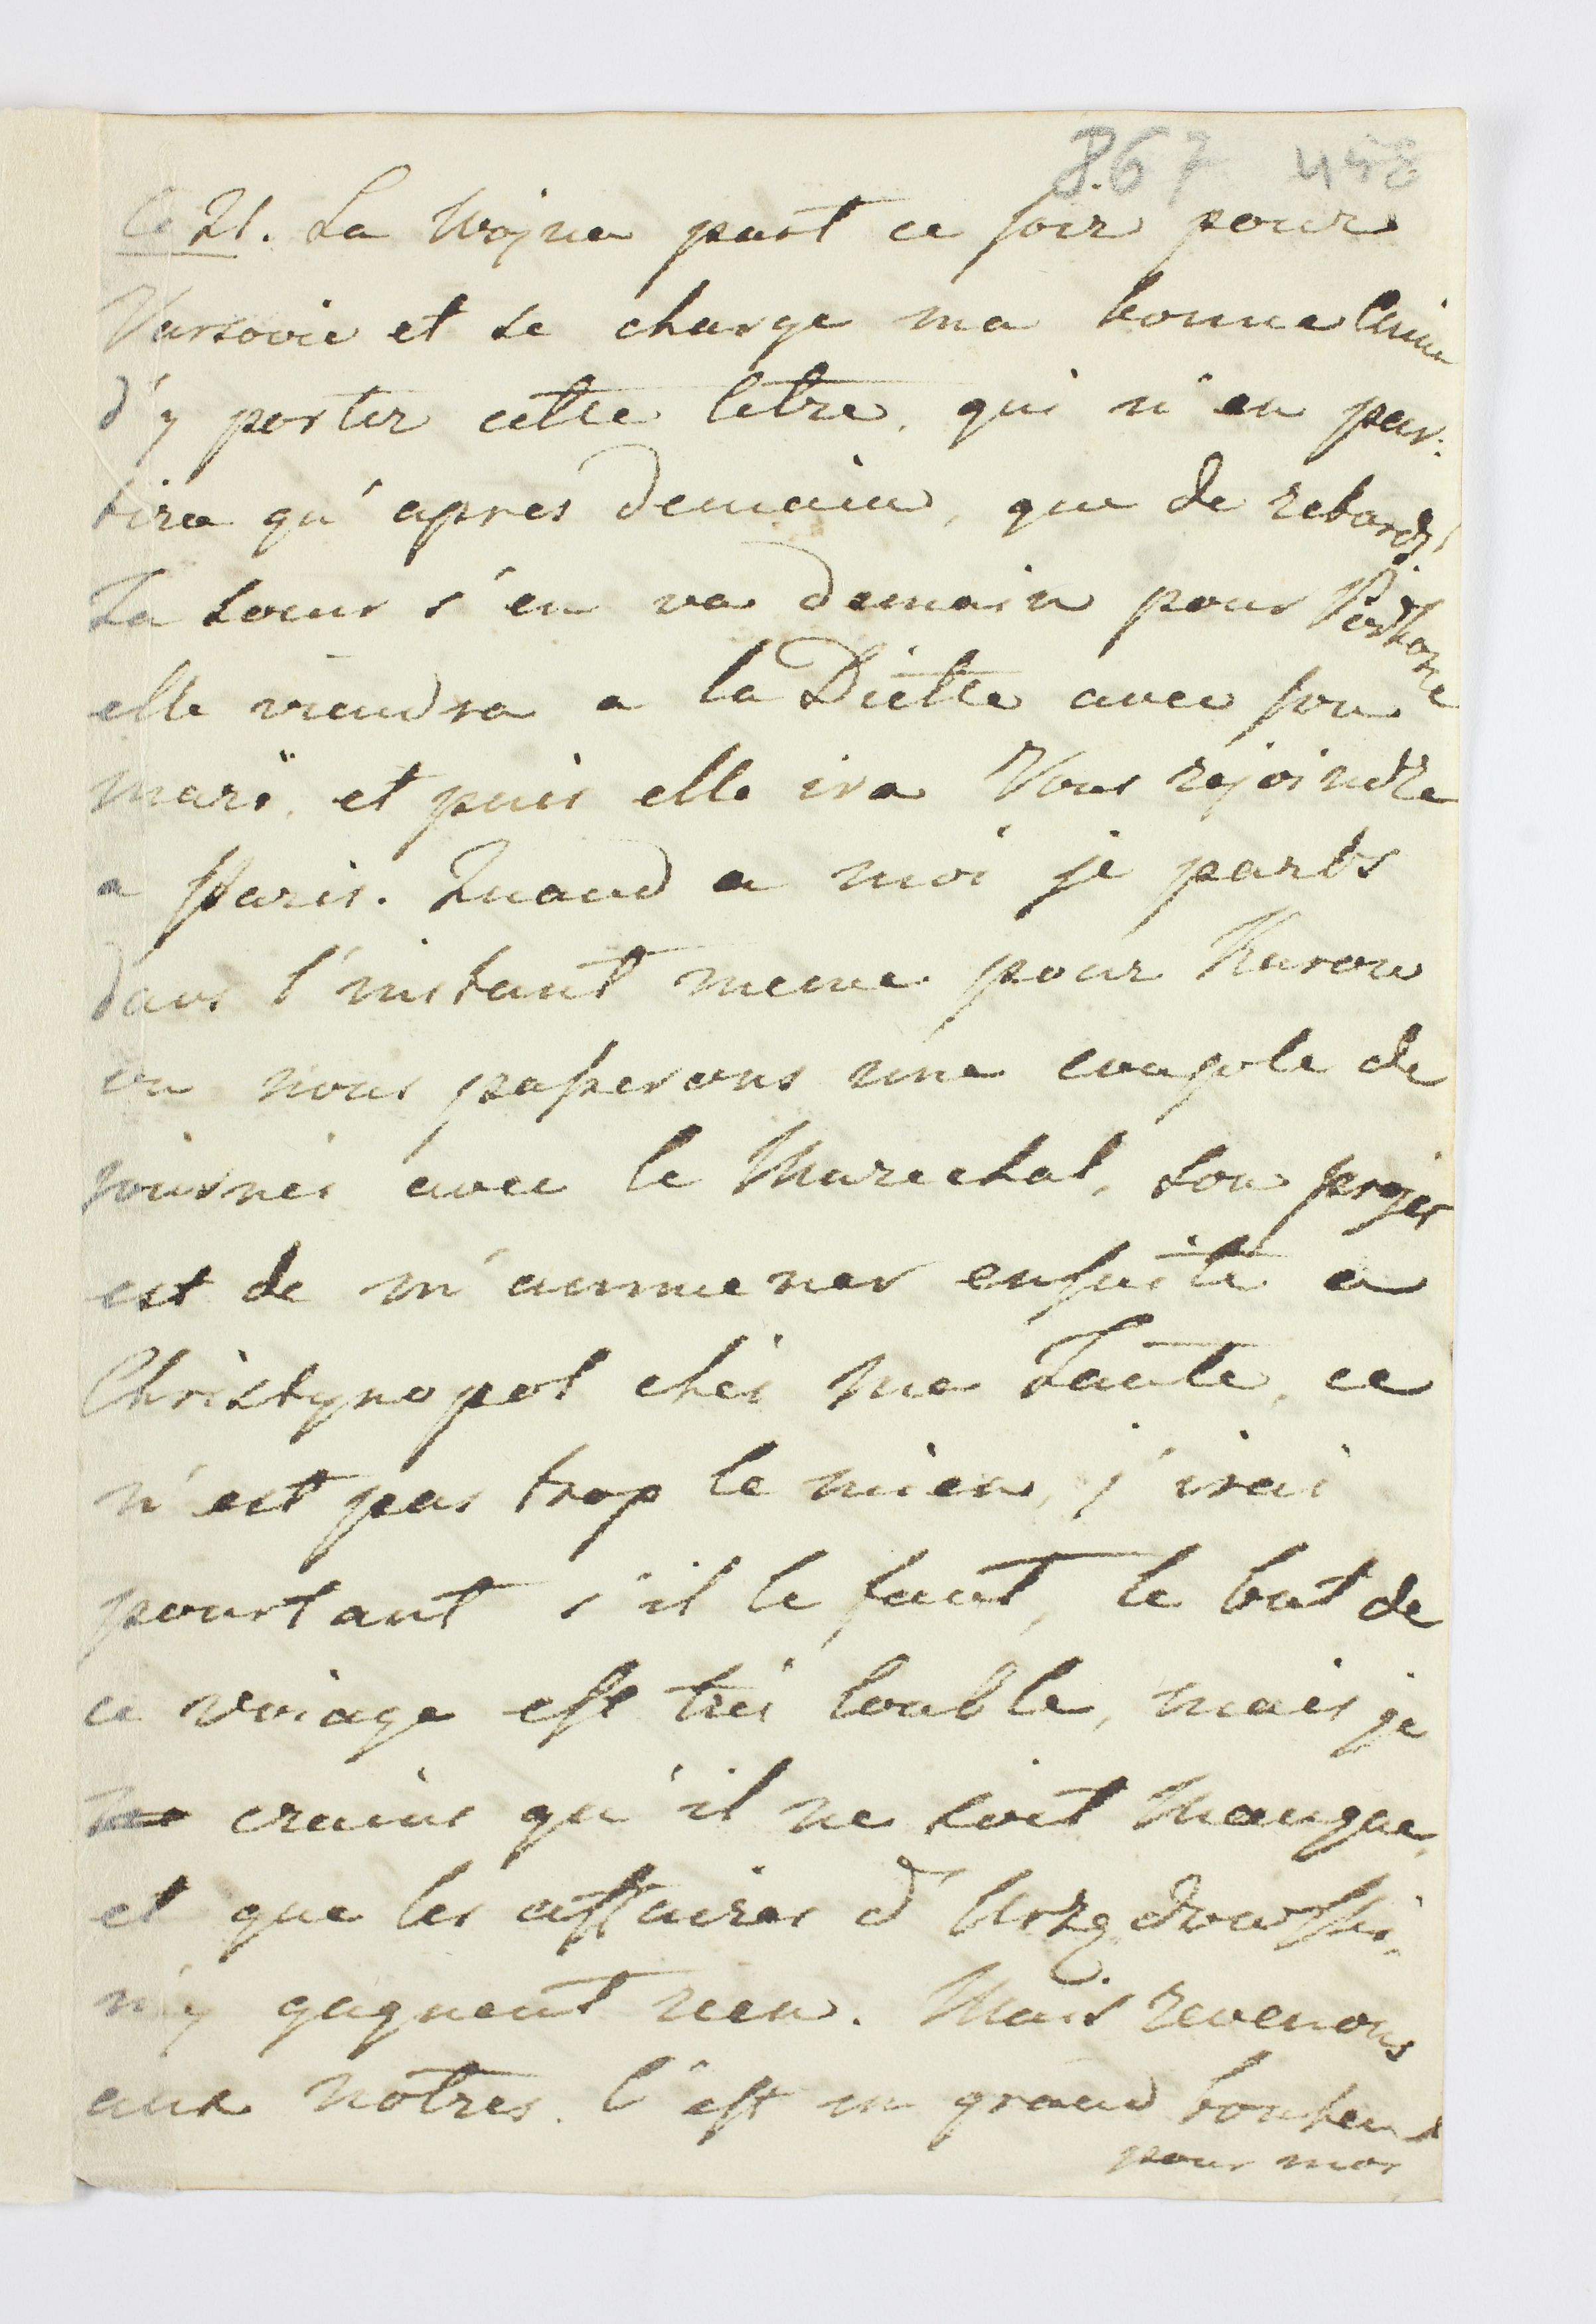 867 458
Ce 21. La Wojna part ce soir pour
Varsovie et se charge ma bonne Amie
d'y porter cette letre, qui n'en par:
tira qu'apres demain, que de retards!
Sa soeur s'en va demain pour
elle viendra a la Diette avec son
mari, et puis elle ira Vous rejoindre
a Paris. Quand a moi je parts
dans l'instant meme pour Kurow
ou nous passerons une couple de
journes avec le Marechal, son projet
est de m'ammener ensuite a
Christynopol ches ma Tante, ce
n'est pas trop le mien, j'irai
pourtant s'il le faut, le but de
ce voiage est tres louable, mais je
crains qu'il ne soit manque,
et que les affaires d'Urzędowski,
n'y gagnent rien. Mais revenons
aux notres. C'est un grand bonheur
pour moi